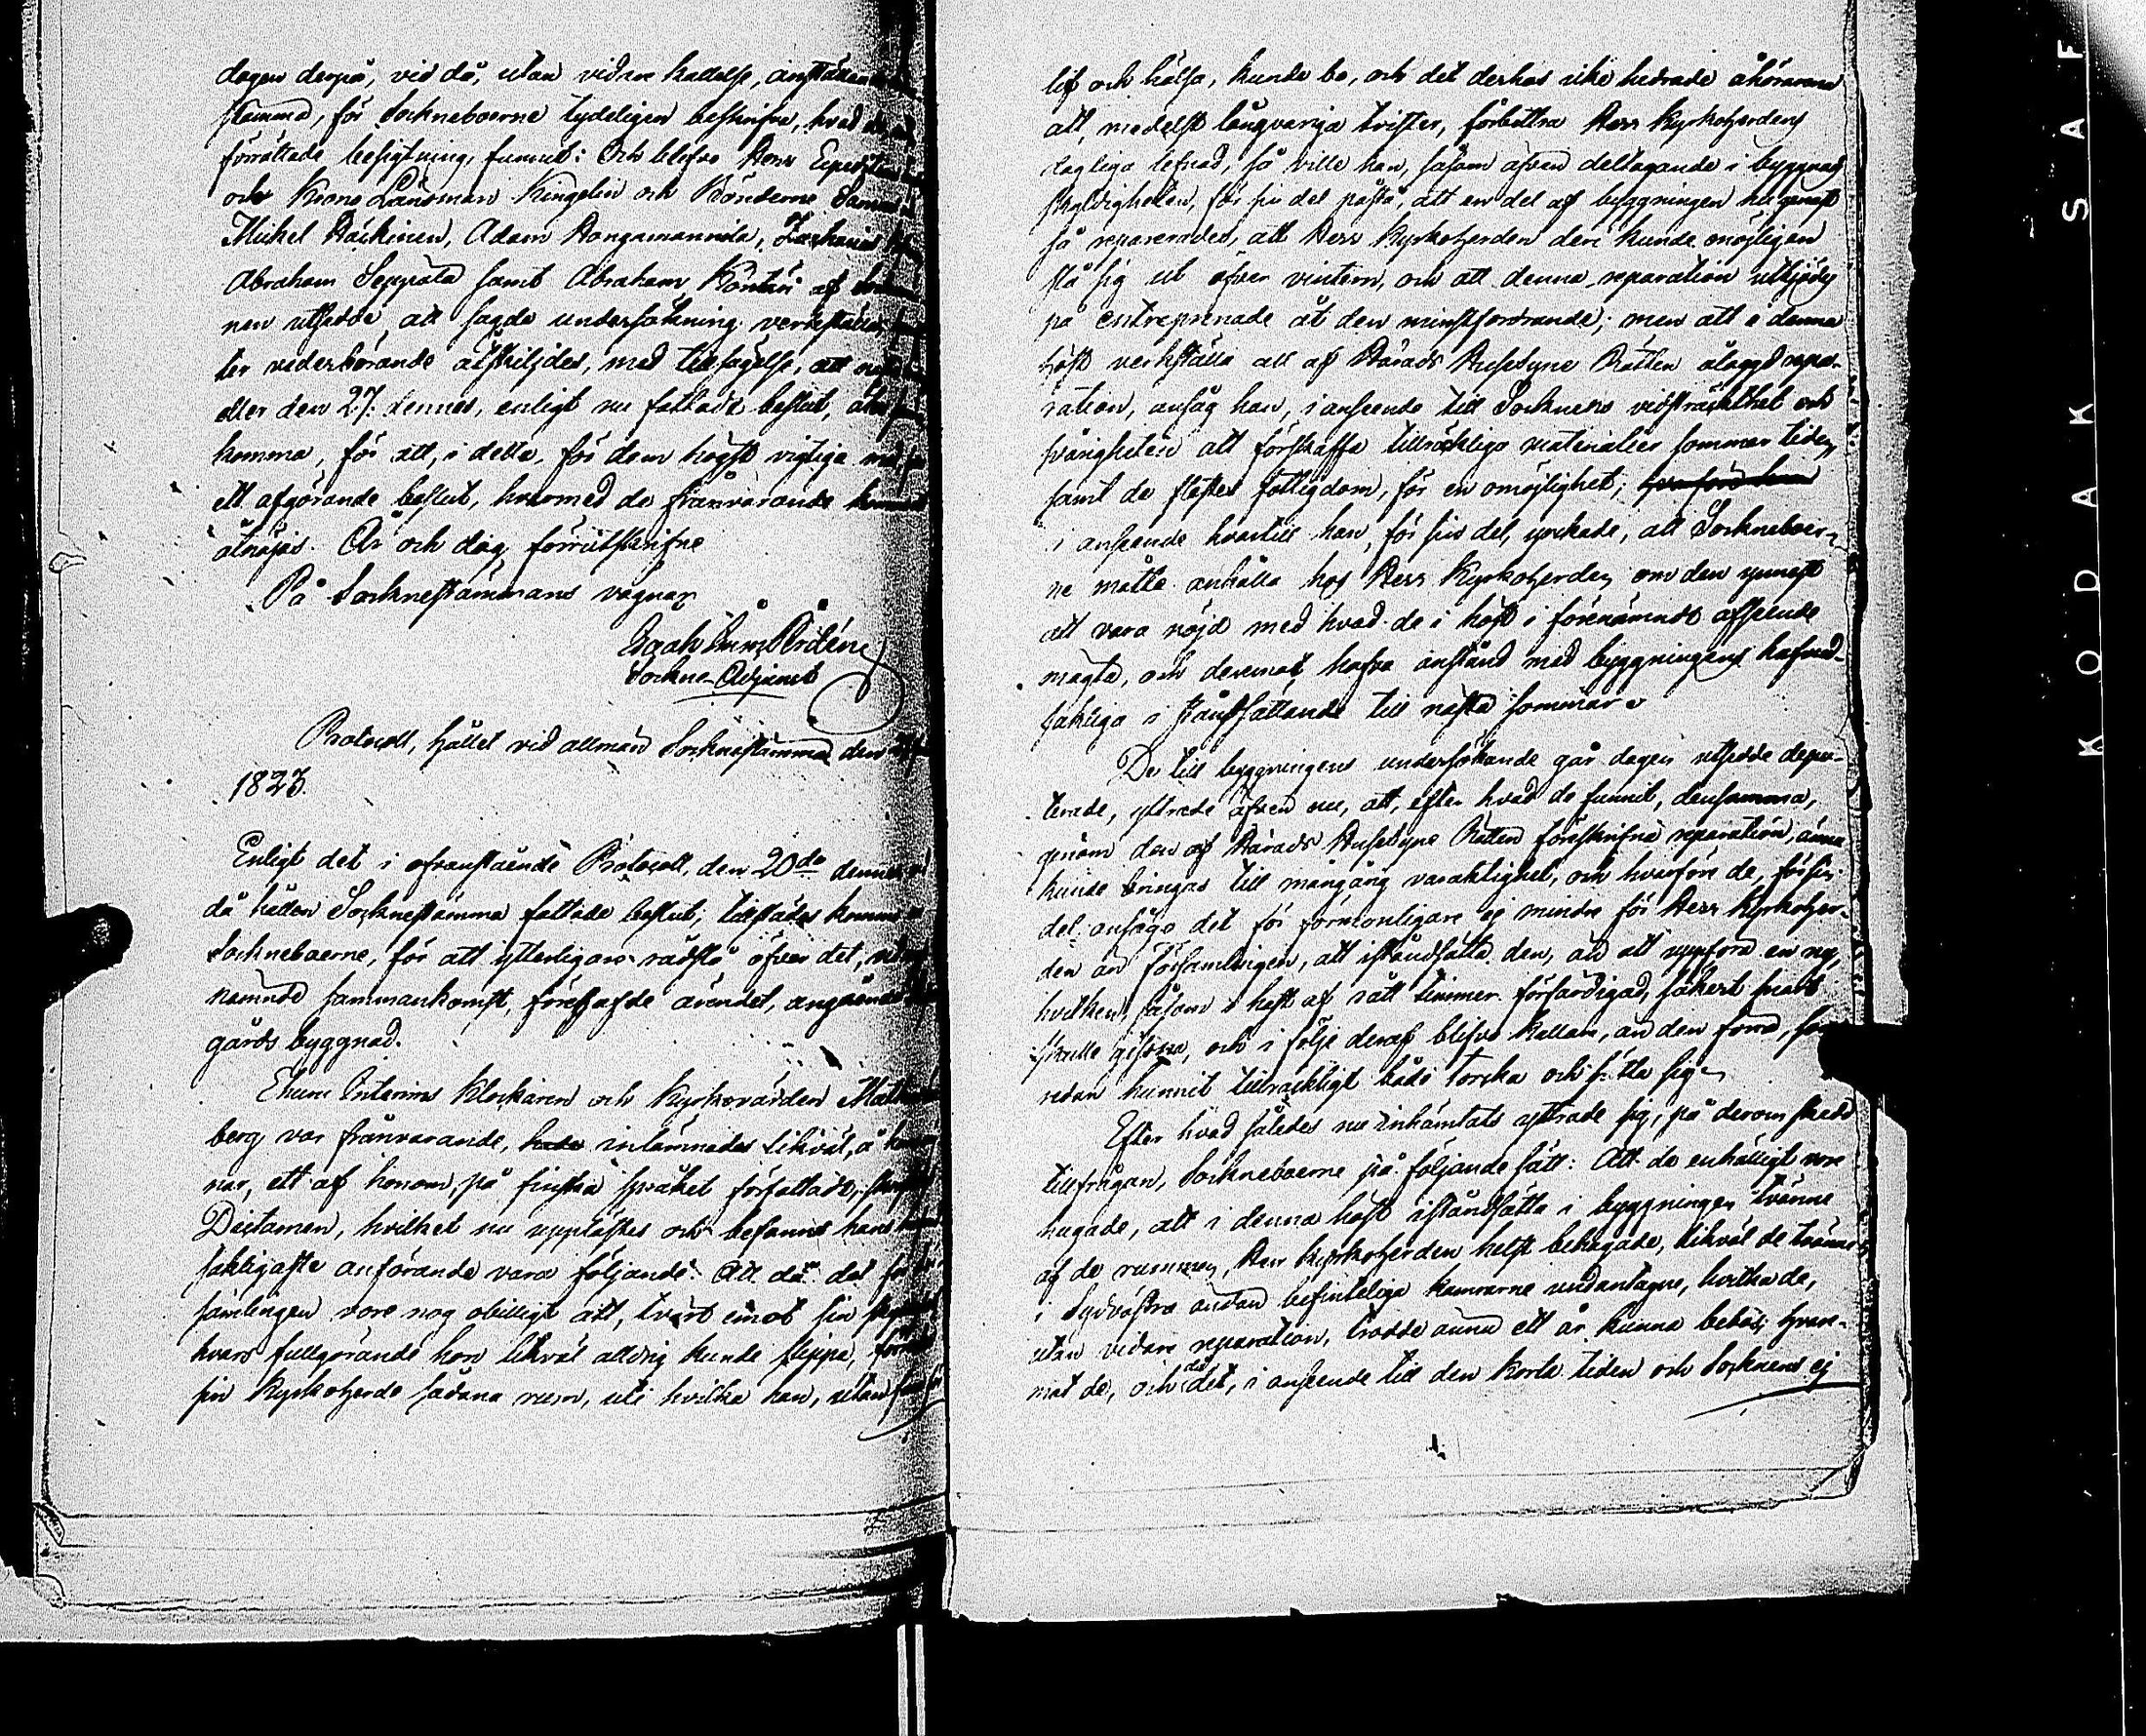 dagen derpå, vid då, utan vidare kallelse,
stamma, för Sockneboerne tydeligen beskrifva, hvad de
förrättade besigtning, funnit: Och blefvo Herr
och Krono Länsman Kingelin och Bönderne
Mickel Häckinen, Adam Hangamannila, Zacharias
Abraham Seppälä samt Abraham Köntäri af
nen utsedde att sagde undersökning verkställa,
ter vederbörande åtskiljdes, med tillsägelse, att
eller den 27. dennes, enligt nu fattade beslut, åter
komma, för att, i detta, för dem högst vigtiga
ett afgörande beslut, hvarmed de frånvarande
åtnöjas. År och dag förrutskrifne
På Sockneståmmans vägnar
Sockne-Adjunct
Protocoll, hållet vid allmän Socknestämma den
1823.
Enligt det i ofvanstående Protocoll, den 20de dennes vid
då hållen Socknestämma fattade beslut, tillstädes kommo
Sockneboerne, för att ytterligare rådslå öfver det, vid
nämnde sammankomst, förehafde ärendet, angående
gårds byggnad.
Ehuru Interims Klockaren och Kyrkovärden
berg var frånvarande, inlämnades likväl, å
nar, ett af honom, på finska språket författadt,
Dictamen, hvilket nu upplästes och befanns hans
sakligaste anförande vara följande: Att då det för
samlingen vore nog obilligt att, tvärt emot sin
hvars fullgörande hon likväl alldrig kunde slippa,
sin Kyrkoherde sådana rum, uti hvilka han, utan
lif och hälsa, kunde bo, och det derhos icke hedrade åhörarena
att medelst långvariga tvister, förbittra Herr Kyrkoherdens
dagliga lefnad, så ville han, såsom äfven deltagande i byggnads
skyldigheten, för sin del påstå, att en del af byggningen nu genast
så reparerades, att Herr Kyrkoherden deri kunde möjligen
slå sig ut öfver vintern, och att denna reparation utbjöds
på entreprenade åt den minstfordrande; men att i denna
höst verkställa all af Härads Husesyne Rätten ålagd repa-
ration, ansåg han, i anseende till Socknens vidsträckthet och
svårigheten att förskaffa tillräckliga materialier sommar tiden,
samt de flestes fattigdom, för en omöjlighet;
i anseende hvartill han, för sin del, yrkade, att Sockneboer-
ne måtte anhålla hos Herr Kyrkoherden om den ynnest
att vara nöjd med hvad de i höst i förenämnde afseende
magta, och deremot hafva anstånd med byggningens hufvud-
sakliga i ståndsättande till nästa sommar.
De till byggningens undersökande går dagen utsedde depu-
terade, yttrade äfven nu, att, efter hvad de funnit, densamma,
genom den af Härads Husesyne Rätten föreskrifna reparation, ännu
kunde bringas till mångårig varaktighet, och hvarföre de, för sin
del ansågo det för förmonligare ej mindre för Herr Kyrkoher-
den än Församlingen, att iståndsätta den, än att uppföra en ny,
hvilken, såsom i hast af rått timmer förfärdigad, säkert snart
skulle gistna, och i följe deraf blifva kallare, än den förra, som
redan hunnit tillräckligt både torcka och sätta sig.
Efter hvad således nu inhämtats yttrade sig, på derom skedd
tillfrågan, Sockneboerne på följande sätt: Att de enhälligt vore
hugade, att i denna höst iståndsätta i byggningen tvänne
af de rummen, Herr Kyrkoherden helst behagade, likväl de tvänne
i Sydvästra ändan befinteliga kamrarne undantagne, hvilka de,
utan vidare reparation, trodde ännu ett år kunna bebos; hvare-
mot de, och det, i anseende till den korta tiden och Socknens ej